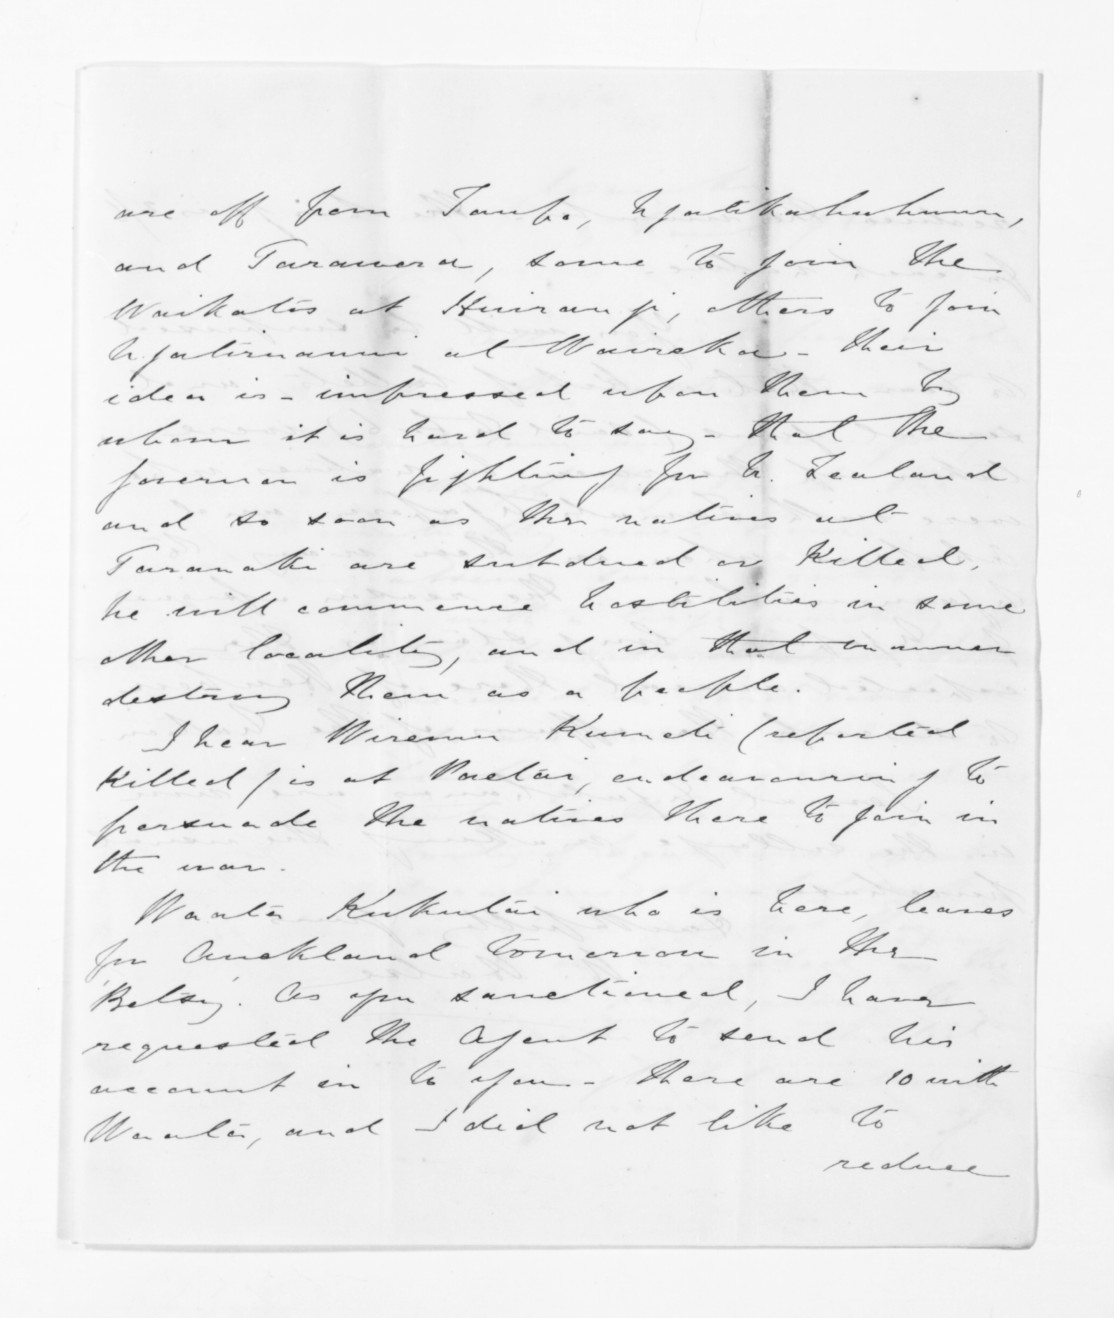 are off from Taupo, Ngatikahuhunu,
and Tarawera, some to join the
Waikatos at Huirangi, others to join
Ngatiruanui at Waireka - their
idea is - impressed upon them by
whom it is hard to say - that the
Governor is fighting for N. Zealand
and so soon as the natives at
Taranaki are subdued or killed,
he will commence hostilities in some
other locality, and in that manner
destroy them as a people.
I hear Wiremu Kumete (reported
killed) is at Paetai, endeavouring to
persuade the natives there to join in
the war.
Waata Kukutai who is here, leaves
for Auckland tomorrow in the
'Betsy'. As you sanctioned, I have
requested the Agent to send his
account in to you - There are 10 with
Waata, and I did not like to
reduce